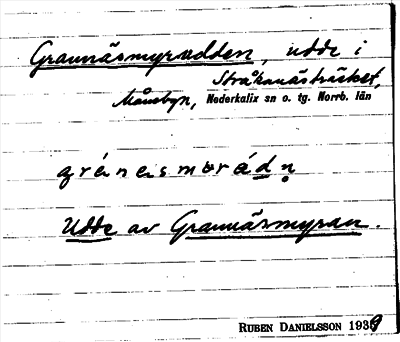 Grannäsmyrudden, udde i
Stråkanästräsket,
Månsbyn, Nederkalix sn o. tg. Norrb. län
gránesmɵrádn̥
Udde av Grannäsmyran.
RUBEN DANIELSSON 1939